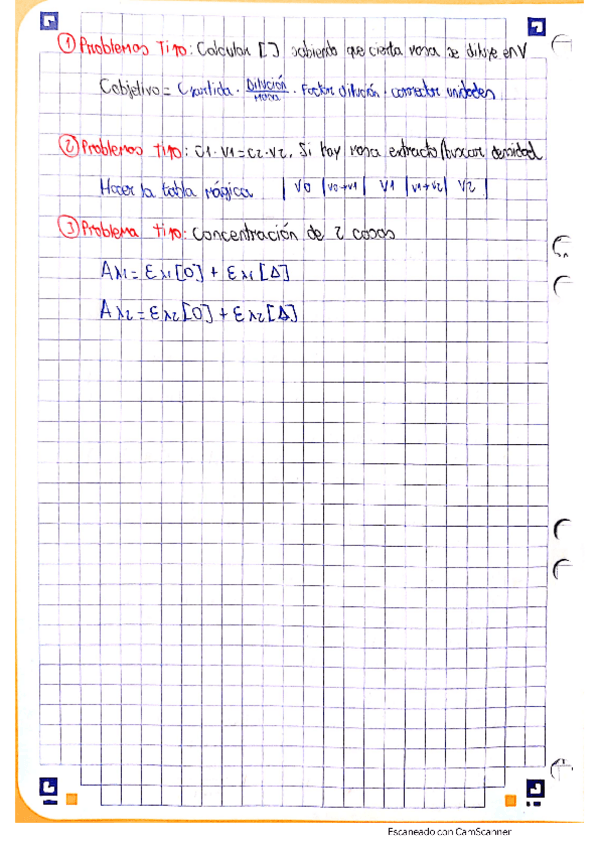 ① Problemas Tipo: Calcular [ ] sabiendo que cierta masa se diluye en V
Cobjetivo = Cpartida · Dilución/masa · Factor dilución · corrector unidades
② Problemas tipo: C1·V1=C2·V2. Si hay masa extracto/buscar densidad
Hacer la tabla mágica | V0 | V0→V1 | V1 | V1→V2 | V2 |
③ Problema tipo: Concentración de 2 cosas
Aλ1 = Ελ1[O] + Ελ1[Δ]
Aλ2 = Ελ2[O] + Ελ2[Δ]
Escaneado con CamScanner